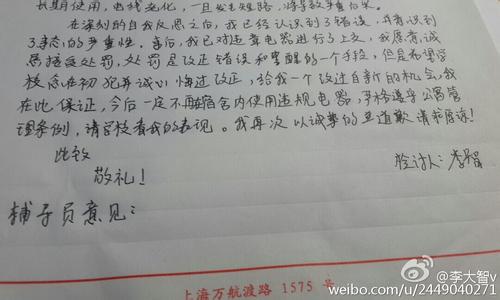 长期使用，电线老化，一旦发生短路，将导致严重后果。
在深刻的自我反思之后，我已经认识到了错误，并意识到
了事态的严重性。事后，我已对违章电器进行了上交，我愿意诚
恳接受处罚，处罚是改正错误和警醒的一个手段，但是希望学
校念在初犯并诚心悔过改正，给我一个改过自新的机会，我
在此保证，今后一定不再在宿舍内使用违规电器，严格遵守公寓管
理条例，请学校看我的表现。我再次以诚挚的歉道歉请求原谅！
此致
敬礼！
检讨人：李智
辅导员意见：
上海万航渡路 1575 号
@李大智v
weibo.com/u/2449040271